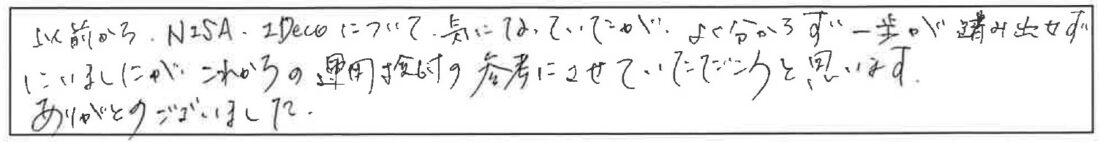 以前から、NISA・iDecoについて、気になっていたが、よく分からず 一歩が踏み出せず
にいましたが、これからの運用検討の参考にさせていただこうと思います。
ありがとうございました。